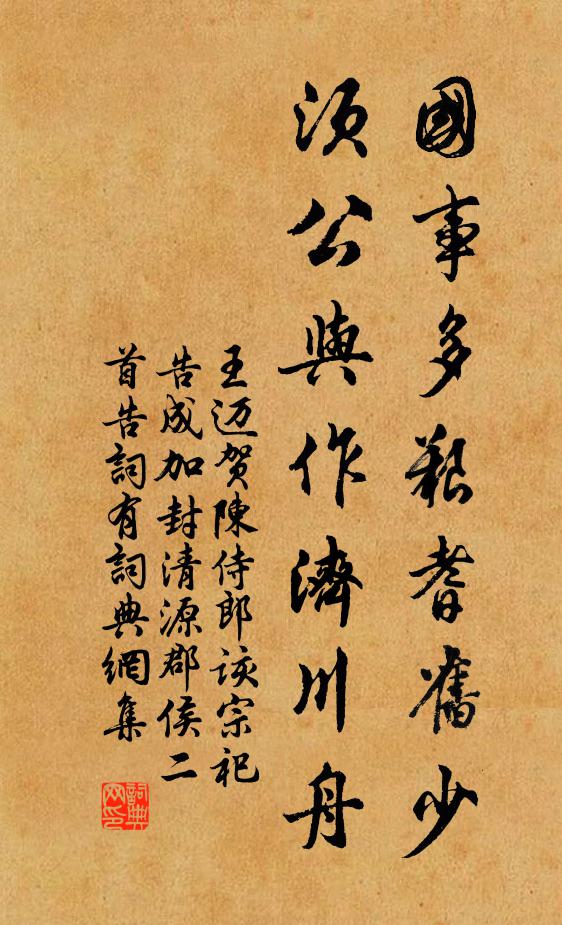 國事多艱耆舊少
須公與作濟川舟
王迈贺陳侍郎該宗祀
告成加封清源郡侯二
首告詞有詞典網集
詞典
网印